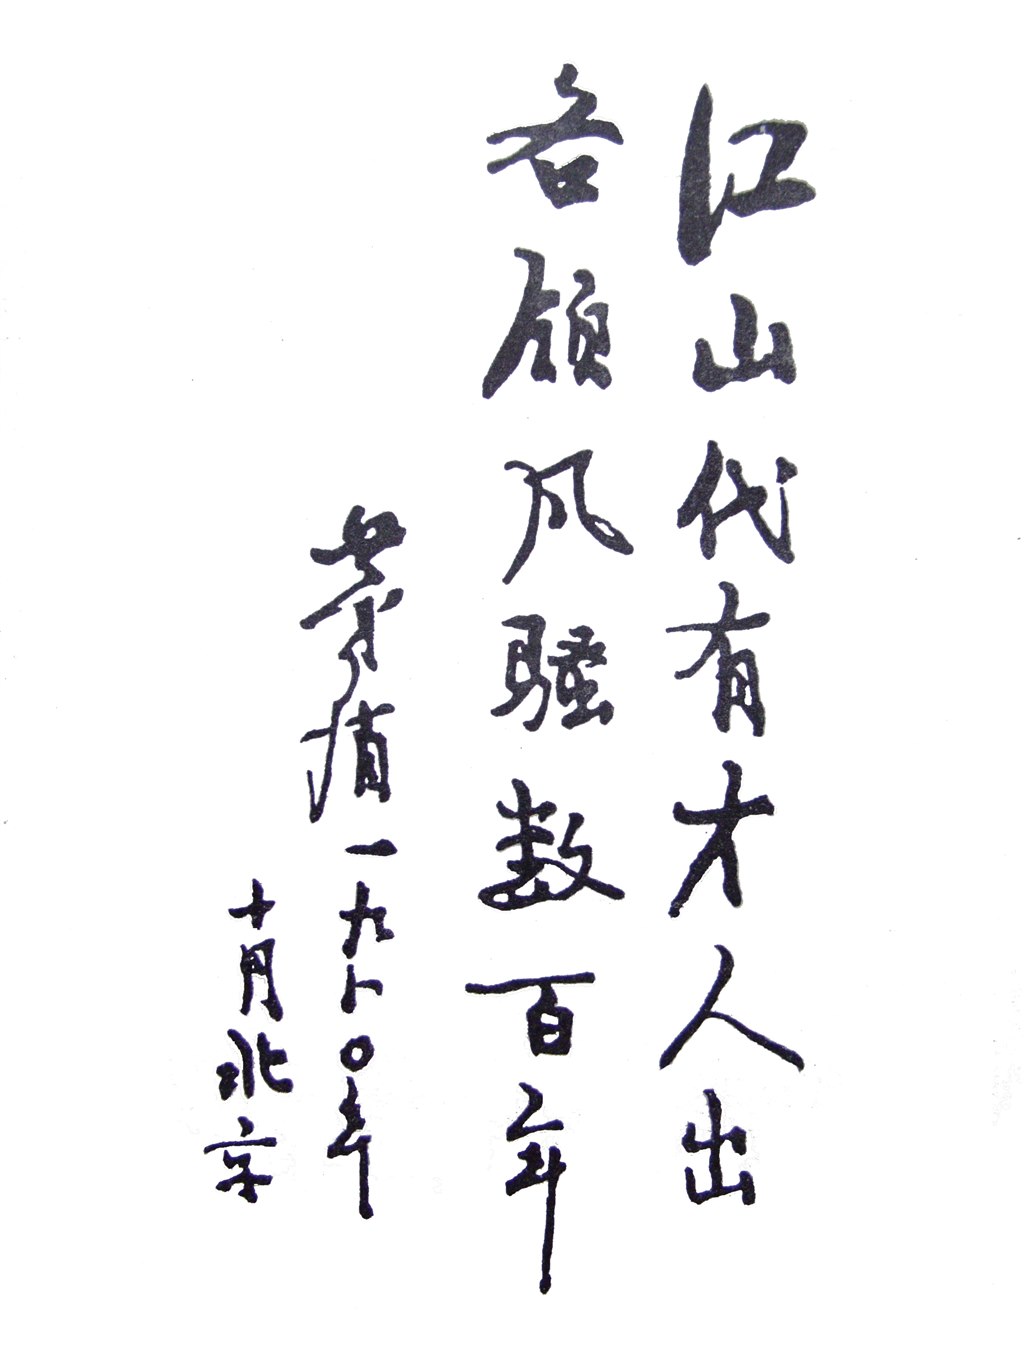 江山代有才人出
各领风骚数百年
茅盾一九八〇年
十月北京